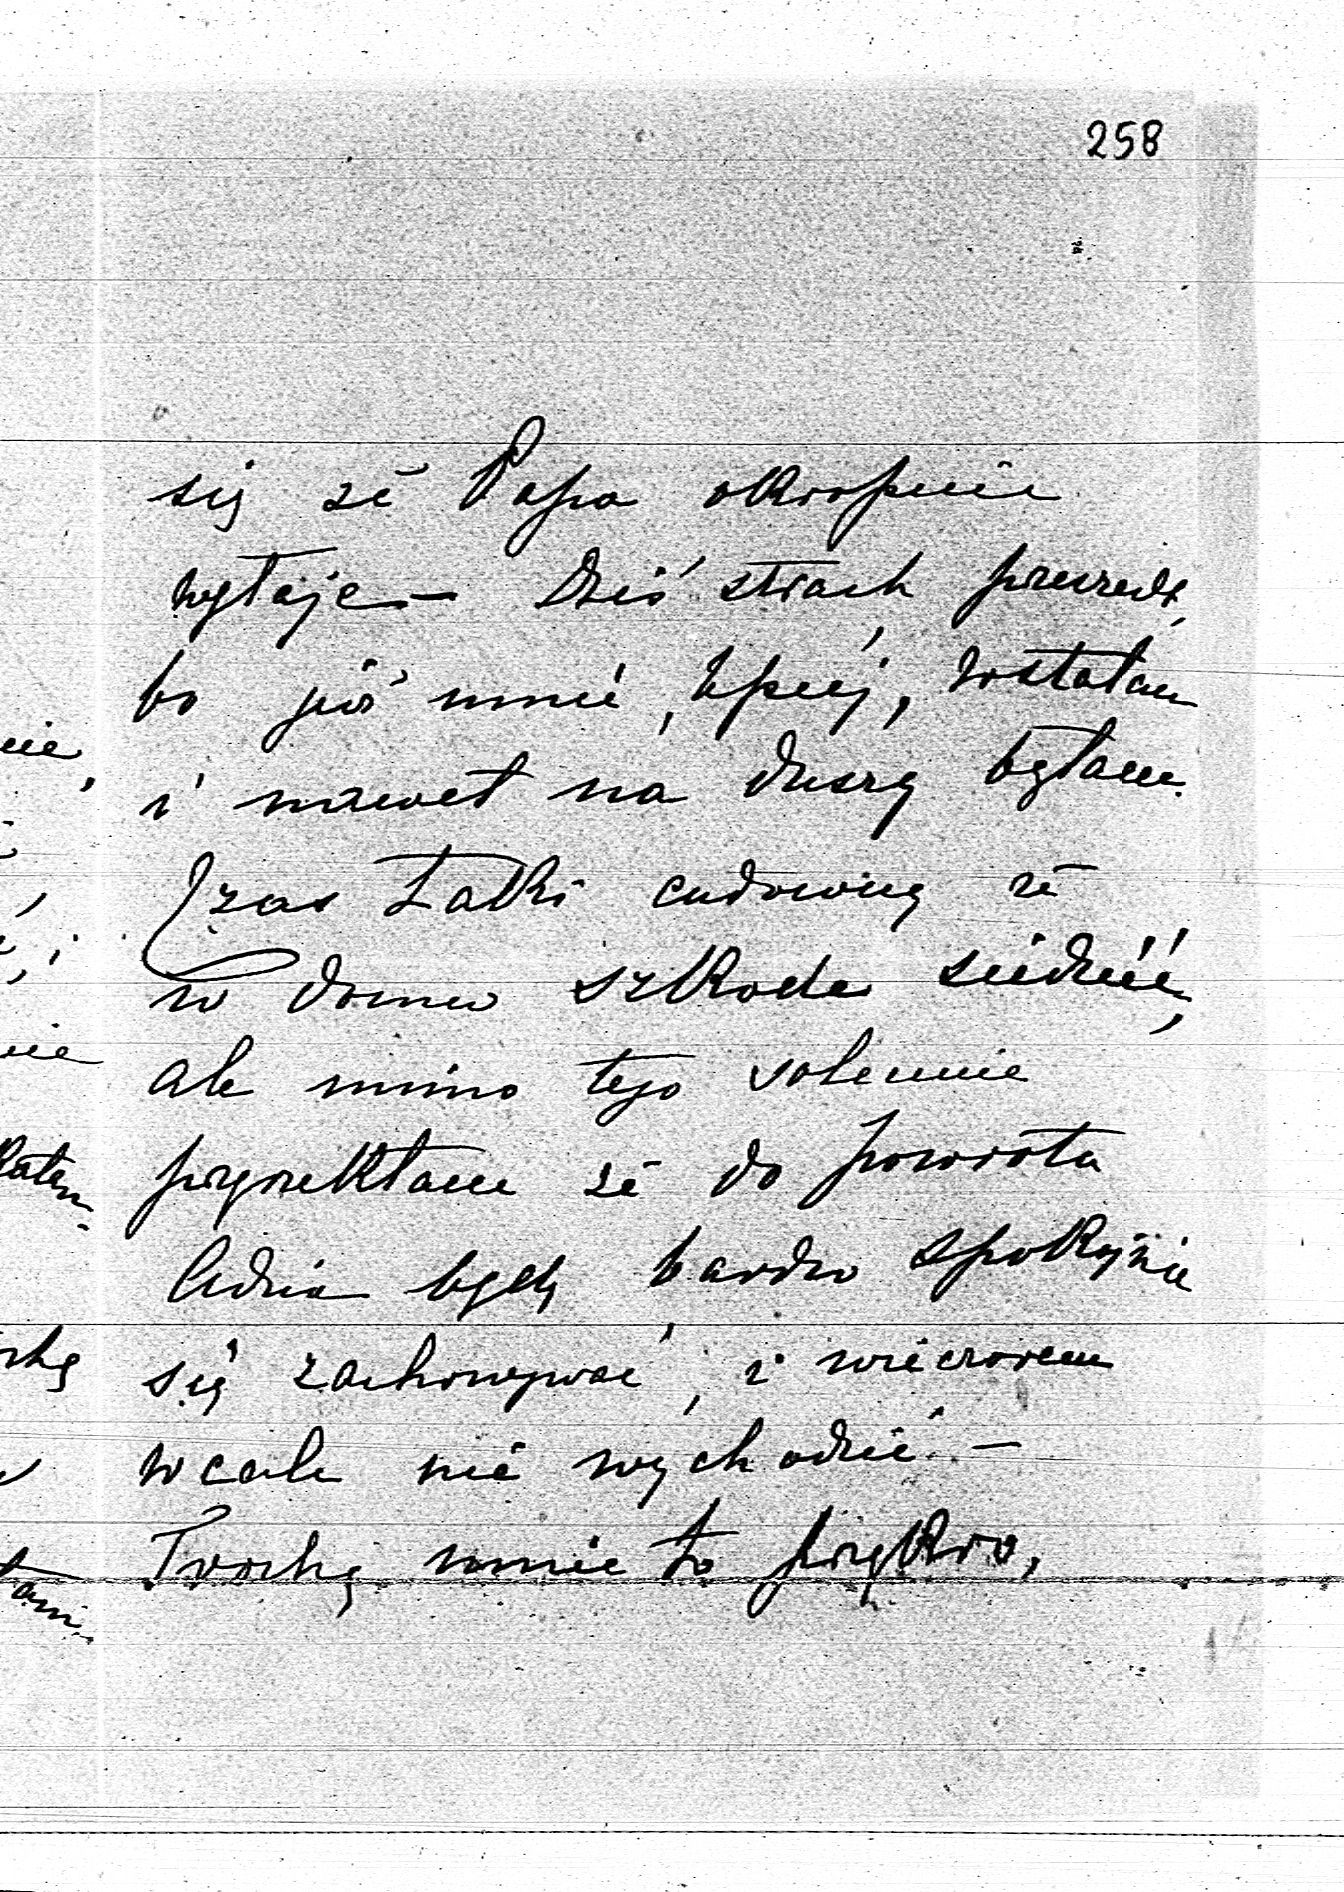 258
się że Papa okropnie
Dziś strach przeszedł,
bo już mnie lepiej, wstałam
i nawet na duszy byłam.
Czas taki cudowny że
w domu szkoda siedzieć,
ale mimo tego solennie
przyrzekłam że do powrotu
Adzia będę bardzo spokojnie
się zachowywać, i wieczorem
wcale nie wychodzić –
Trochę mnie to przykro,